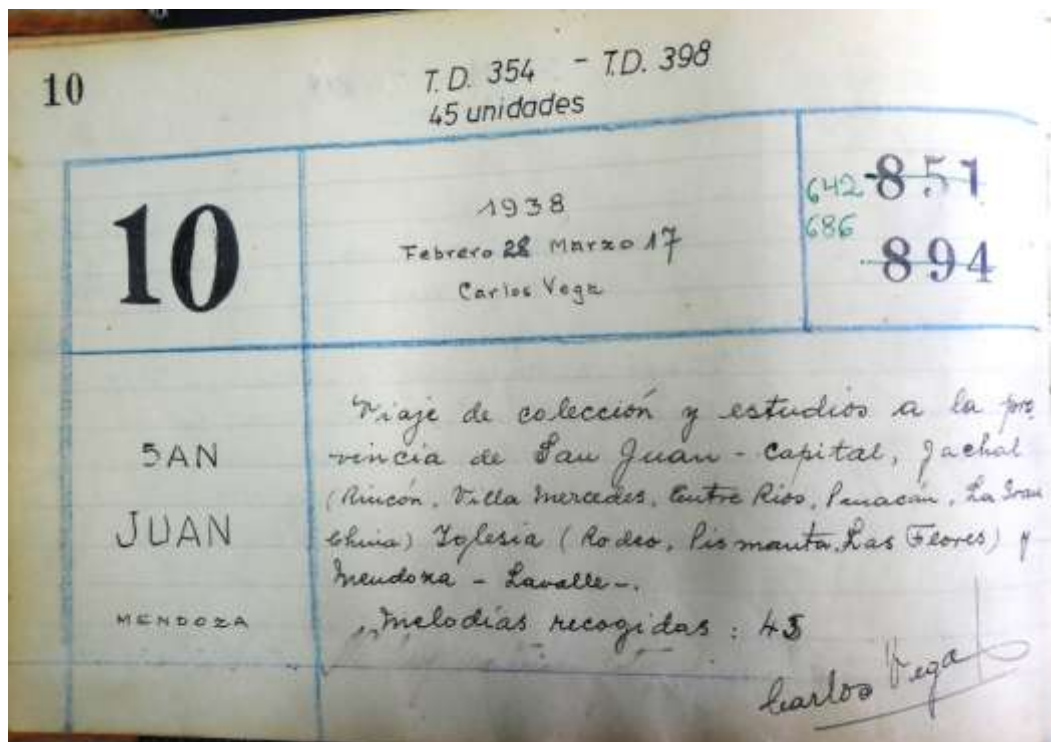 10
T.D. 354 - T.D. 398
45 unidades
10
1938
Febrero 28 Marzo 17
Carlos Vega
642 851
686
894
SAN
JUAN
MENDOZA
Viaje de colección y estudios a la pro
vincia de San Juan - Capital, Jachal
(Rincón, Villa Mercedes, Entre Rios, Panacán, La Gran
China) Iglesia (Rodeo, Pismanta, Las Flores) y
Mendoza - Lavalle -.
Melodías recogidas : 45
Carlos Vega